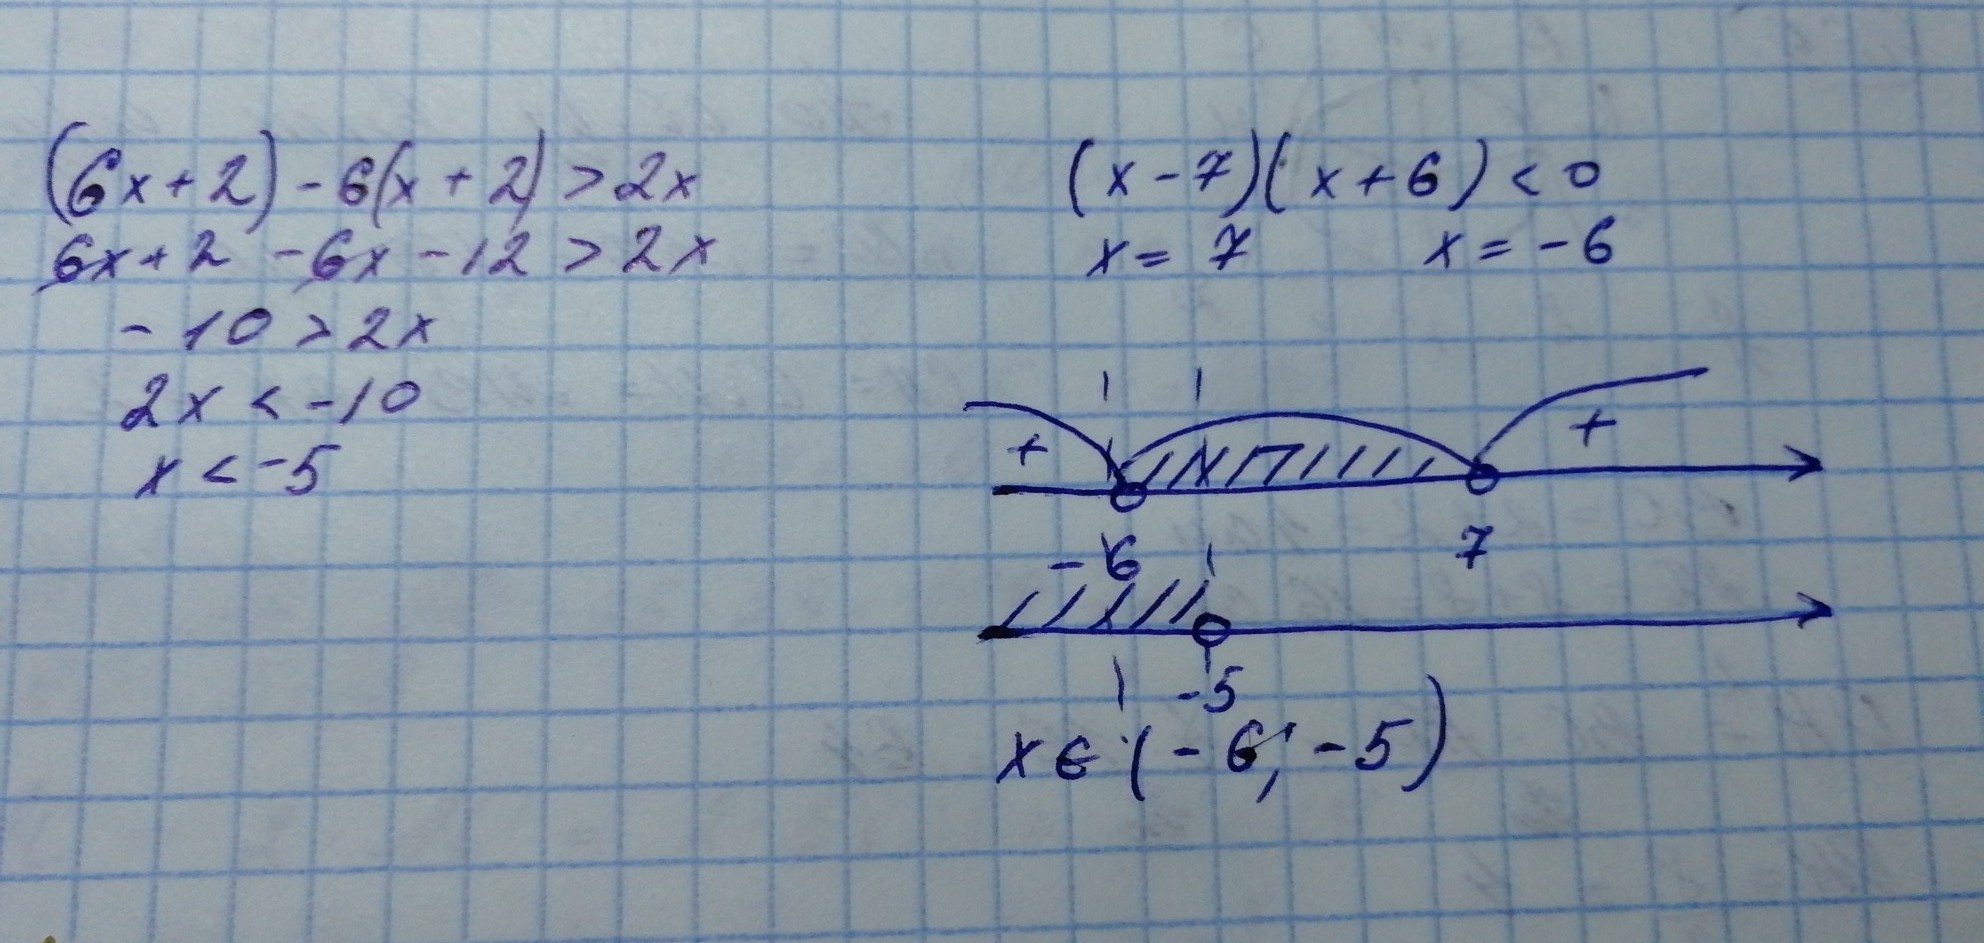 (6x+2)-6(x+2)>2x
6x+2-6x-12>2x
-10>2x
2x<-10
x<-5
(x-7)(x+6)<0
x=7 x=-6
+ +
-6 7
-5
x∈(-6;-5)